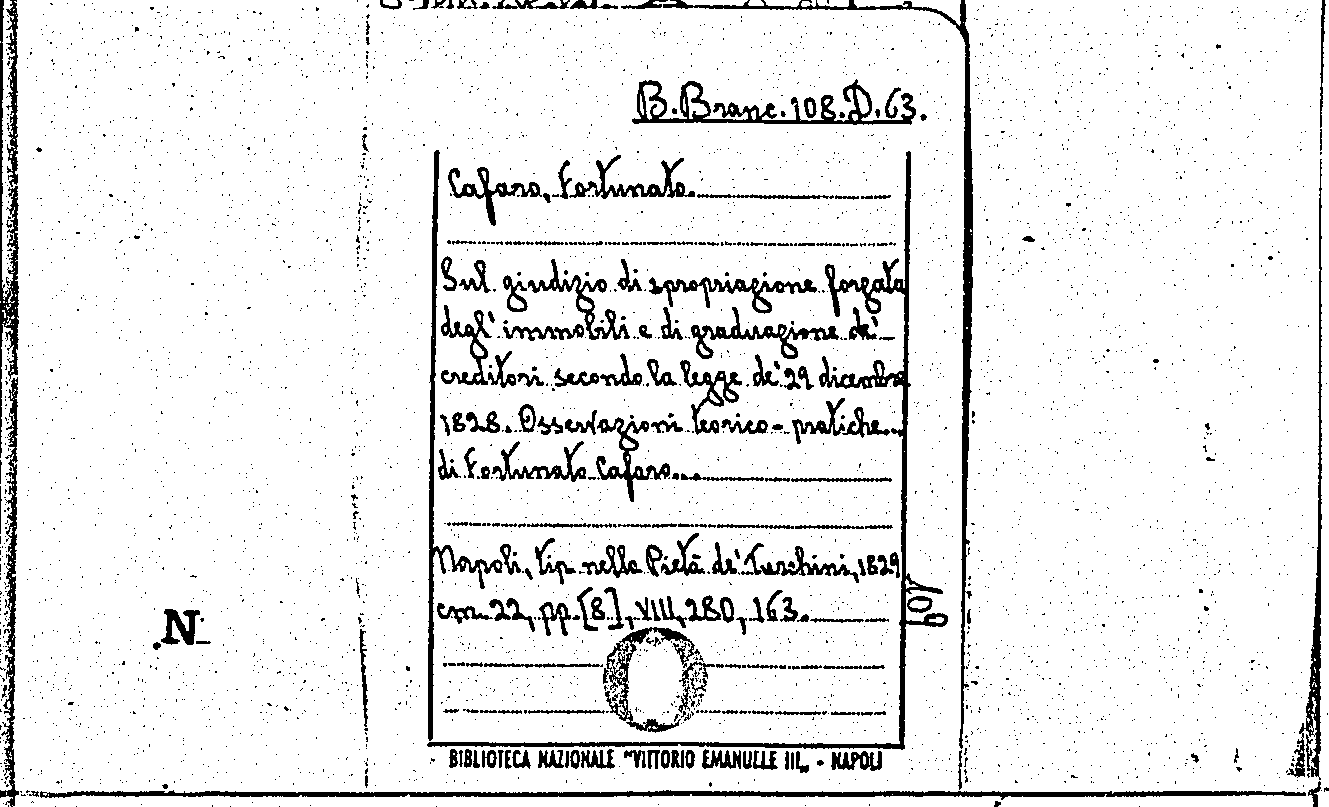 B.Branc.108.D.63.
Cafaro, Fortunato.
Sul giudizio di spropriazione forzata
degl' immobili e di graduazione de'
creditori secondo la legge de' 29 dicembre
1828. Osservazioni teorico-pratiche...
di Fortunato Cafaro...
Napoli, tip. nella Pietà de' Turchini, 1829
cm. 22, pp. [8], VIII, 280, 163.
N
BIBLIOTECA NAZIONALE "VITTORIO EMANUELE III„ - NAPOLI